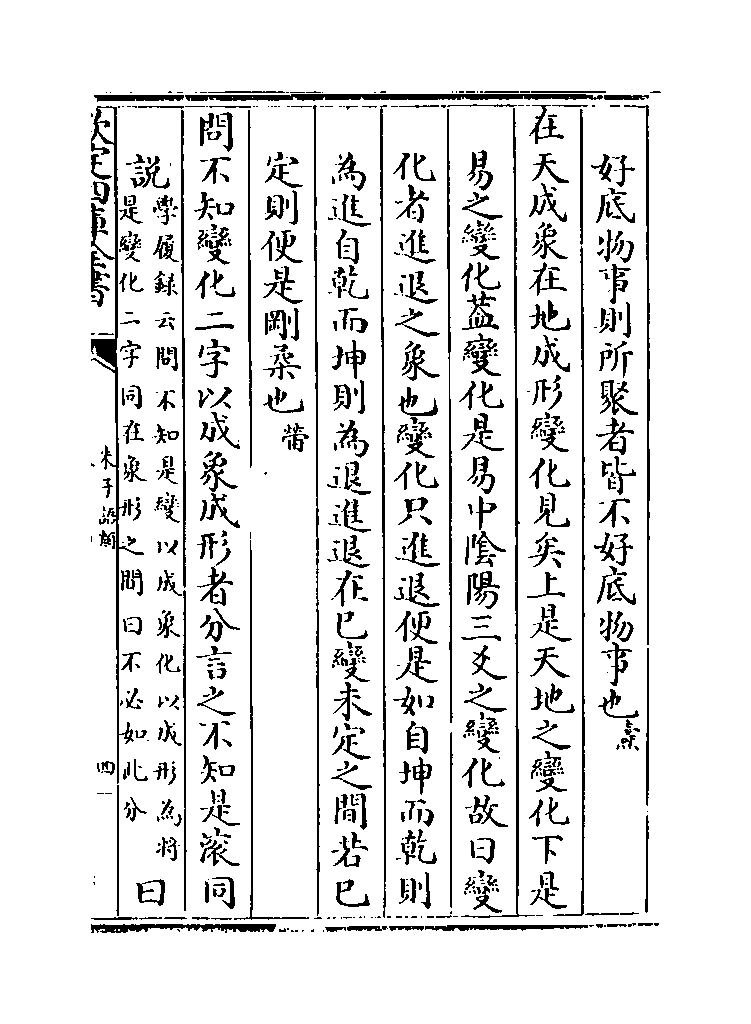 好底物事則所聚者皆不好底物事也㽦
在天成象在地成形變化見矣上是天地之變化下是
易之變化蓋變化是易中陰陽二爻之變化故曰變
化者進退之象也變化只進退便是如自坤而乾則
為進自乾而坤則為退進退在已變未定之間若已
定則便是剛柔也㽦
問不知變化二字以成象成形者分言之不知是滚同
說學履錄云問不知是變以成象化以成形為將
是變化二字同在象形之間曰不必如此分曰
欽定四庫全書
朱子語類
四